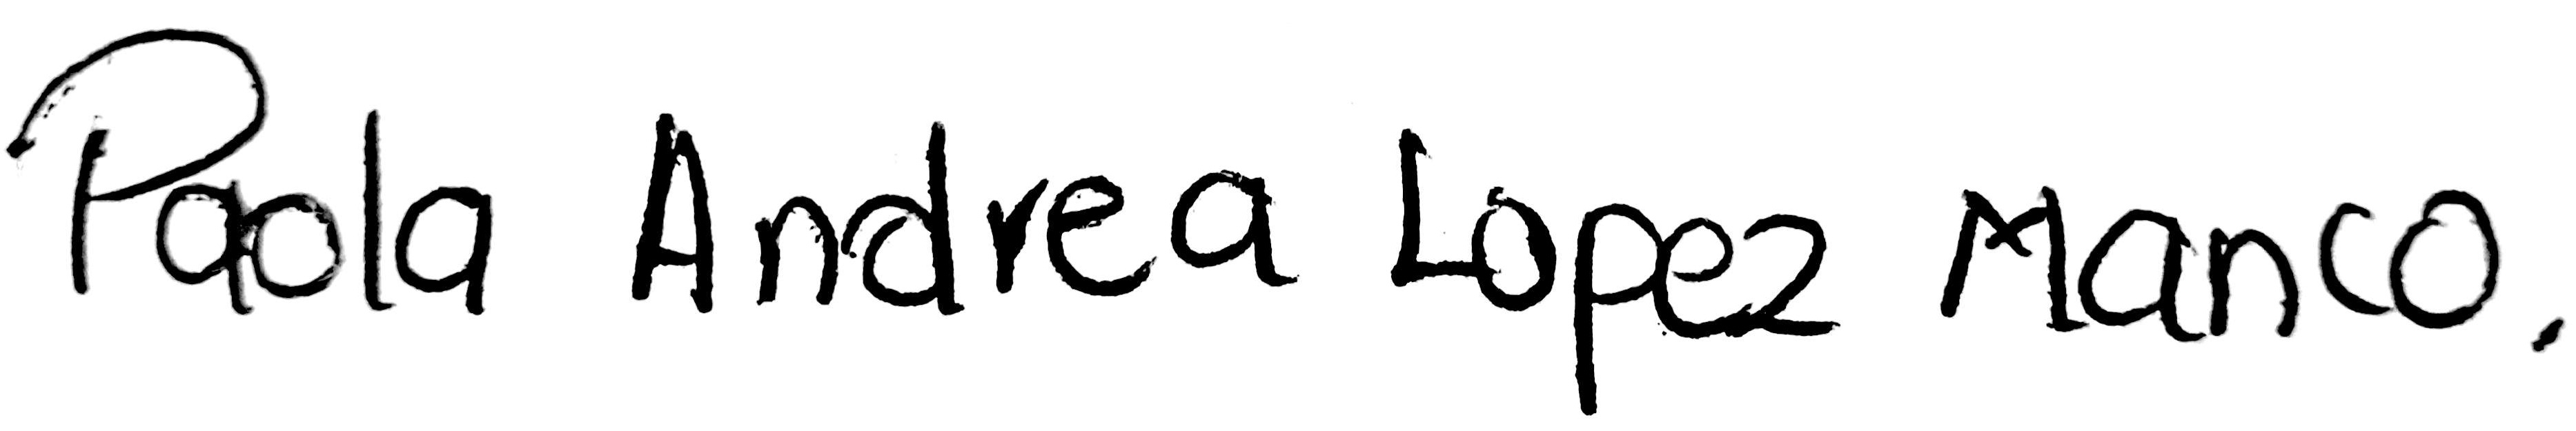 Paola Andrea Lopez Manco.